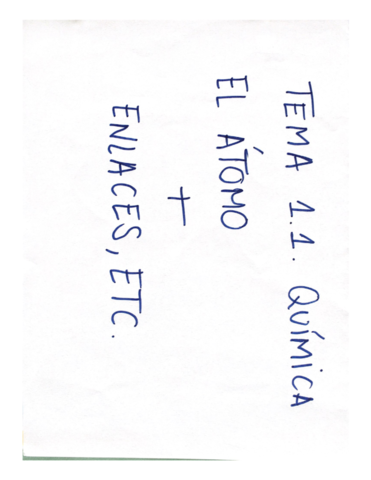 TEMA 1.1. QUÍMICA
EL ÁTOMO
+
ENLACES, ETC.